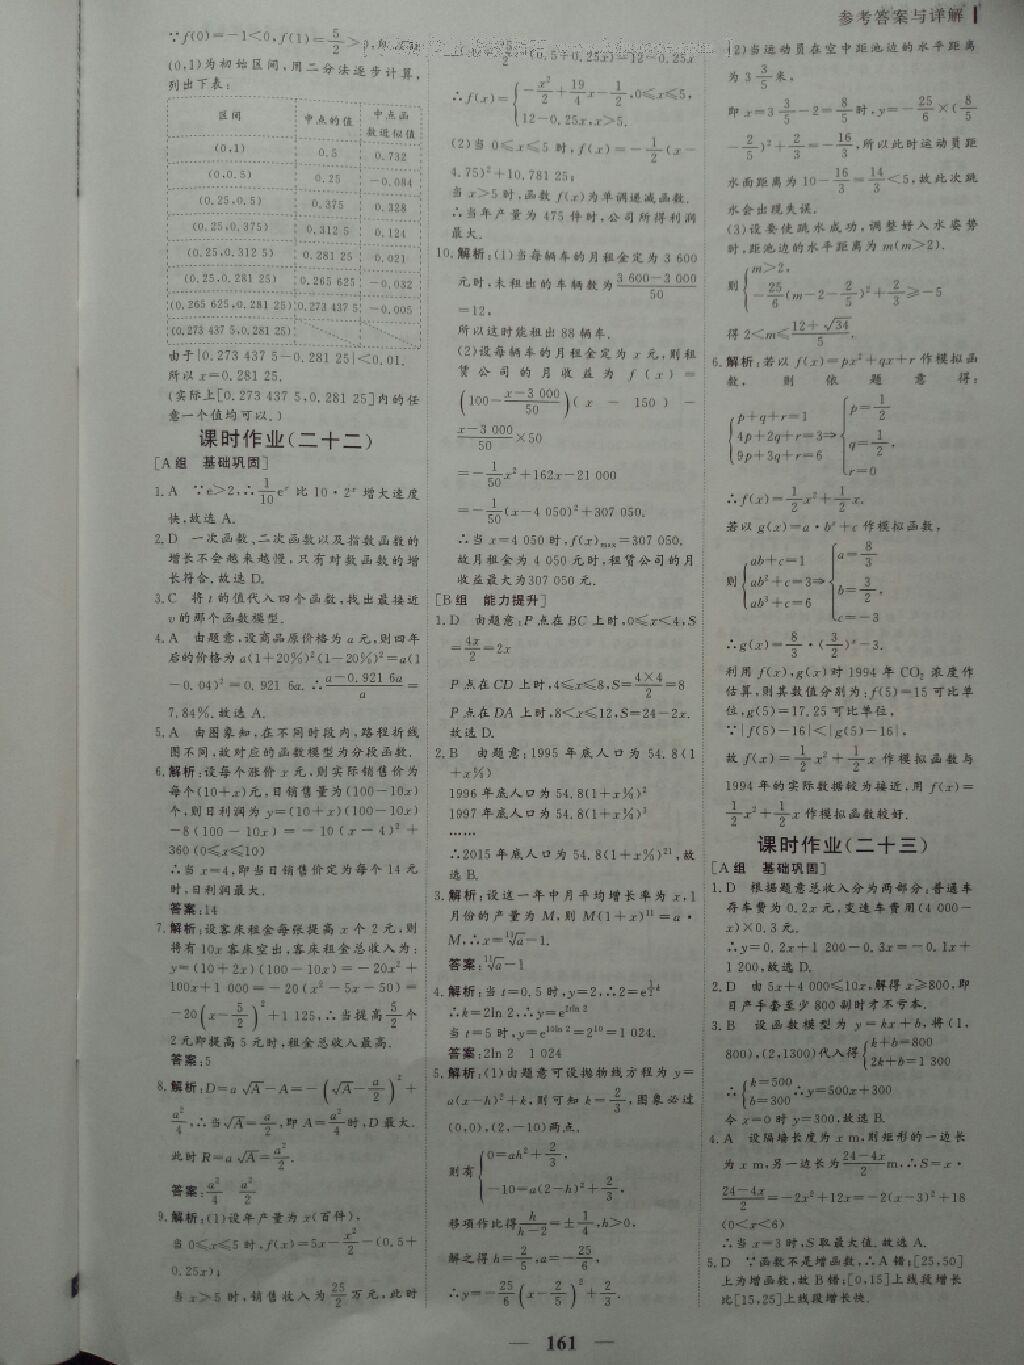 参考答案与详解
∵f(0)=-1<0,f(1)=5/2>0,
(0,1)为初始区间,用二分法逐步计算,
列出下表:
区间 中点的值 中点函数近似值
(0,1) 0.5 0.732
(0,0.5) 0.25 -0.084
(0.25,0.5) 0.375 0.328
(0.25,0.375) 0.312 5 0.124
(0.25,0.312 5) 0.281 25 0.021
(0.25,0.281 25) 0.265 625 -0.032
(0.265 625,0.281 25) 0.273 437 5 -0.005
(0.273 437 5,0.281 25)
由于|0.273 437 5-0.281 25|<0.01.
所以x=0.281 25.
(实际上[0.273 437 5,0.281 25]内的任
意一个值均可以.)
课时作业(二十二)
[A组 基础巩固]
1.A ∵e>2,∴1/10 eˣ 比 10·2ˣ 增大速度
快,故选 A.
2.D 一次函数、二次函数以及指数函数的
增长不会越来越慢,只有对数函数的增
长符合.故选 D.
3.C 将 t 的值代入四个函数,找出最接近
v 的那个函数模型.
4.A 由题意,设商品原价格为 a 元,则四年
后的价格为 a(1+20%)²(1-20%)²=a(1
-0.04)²=0.921 6a.∴(a-0.921 6a)/a=
7.84%.故选 A.
5.A 由图象知,在不同时段内,路程折线
图不同,故对应的函数模型为分段函数.
6.解析:设每个涨价 x 元,则实际销售价为
每个(10+x)元,日销售量为(100-10x)
个,则日利润为 y=(10+x)(100-10x)
-8(100-10x)=-10(x-4)²+
360(0≤x≤10)
∴当 x=4,即当日销售价定为每个 14 元
时,日利润最大.
答案:14
7.解析:设客床租金每张提高 x 个 2 元,则
将有 10x 客床空出,客床租金总收入为:
y=(10+2x)(100-10x)=-20x²+
100x+1 000=-20(x²-5x-50)=
-20(x-5/2)²+1 125,∴当提高5/2个
2 元即提高 5 元时,租金总收入最高.
答案:5
8.解析:D=a√A-A=-(√A-a/2)²+
a²/4,∴当√A=a/2,即 A=a²/4时,D 最大.
此时 R=a√A=a²/2.
答案:a²/4 a²/2
9.解析:(1)设年产量为 x(百件),
当 0≤x≤5 时,f(x)=5x-x²/2-(0.5+
0.25x);
当 x>5 时,销售收入为25/2万元,此时
25/2-(0.5+0.25x)=12-0.25x
∴f(x)={-x²/2+19/4 x-1/2,0≤x≤5,
12-0.25x,x>5.
(2)当 0≤x≤5 时,f(x)=-1/2(x-
4.75)²+10.781 25;
当 x>5 时,函数 f(x)为单调递减函数.
∴当年产量为 475 件时,公司所得利润
最大.
10.解析:(1)当每辆车的月租金定为 3 600
元时,未租出的车辆数为(3 600-3 000)/50
=12,
所以这时能租出 88 辆车.
(2)设每辆车的月租金定为 x 元,则租
赁公司的月收益为 f(x)=
(100-(x-3 000)/50)(x-150)-
(x-3 000)/50×50
=-1/50 x²+162x-21 000
=-1/50(x-4 050)²+307 050.
∴当 x=4 050 时,f(x)max=307 050.
故月租金为 4 050 元时,租赁公司的月
收益最大为307 050 元.
[B组 能力提升]
1.D 由题意:P 点在 BC 上时,0≤x<4,S
=4x/2=2x
P 点在 CD 上时,4≤x≤8,S=(4×4)/2=8
P 点在 DA 上时,8<x≤12,S=24-2x.
故选 D.
2.B 由题意:1995 年底人口为 54.8(1
+x%)
1996 年底人口为 54.8(1+x%)²
1997 年底人口为 54.8(1+x%)³
……
∴2015 年底人口为 54.8(1+x%)²¹,故
选 B.
3.解析:设这一年中月平均增长率为 x,1
月份的产量为 M,则 M(1+x)¹¹=a·
M,∴x=¹¹√a-1.
答案:¹¹√a-1
4.解析:当 t=0.5 时,y=2,∴2=e^(1/2 k)
∴k=2ln 2,∴y=e^(2tln 2)
当 t=5 时,y=e^(10ln 2)=2¹⁰=1 024.
答案:2ln 2 1 024
5.解析:(1)由题意可设抛物线方程为 y=
a(x-h)²+k,则可知 k=2/3,图象必过
(0,0),(2,-10)两点.
则有{0=ah²+2/3,
-10=a(2-h)²+2/3,
移项作比得h/(h-2)=±1/4,h>0,
解之得 h=2/5,a=-25/6,
∴y=-25/6(x-2/5)²+2/3.
(2)当运动员在空中距池边的水平距离
为 3 3/5 米,
即 x=3 3/5-2=8/5 时,y=-25/6×(8/5
-2/5)²+2/3=-16/3,所以此时运动员距
水面距离为 10-16/3=14/3<5,故此次跳
水会出现失误.
(3)设要使跳水成功,调整好入水姿势
时,距池边的水平距离为 m(m>2).
则{m>2,
-25/6(m-2-2/5)²+2/3≥-5
得 2<m≤(12+√34)/5.
6.解析:若以 f(x)=px²+qx+r 作模拟函
数,则依题意得:
{p+q+r=1
4p+2q+r=3
9p+3q+r=6
⇒{p=1/2
q=1/2,
r=0
∴f(x)=1/2 x²+1/2 x.
若以 g(x)=a·bˣ+c 作模拟函数,
则{ab+c=1
ab²+c=3
ab³+c=6
⇒{a=8/3
b=3/2,
c=-3
∴g(x)=8/3·(3/2)ˣ-3.
利用 f(x),g(x)对 1994 年 CO₂ 浓度作
估算,则其数值分别为:f(5)=15 可比单
位,g(5)=17.25 可比单位,
∵|f(5)-16|<|g(5)-16|,
故 f(x)=1/2 x²+1/2 x 作模拟函数与
1994 年的实际数据较为接近,用 f(x)=
1/2 x²+1/2 x 作模拟函数较好.
课时作业(二十三)
[A组 基础巩固]
1.D 根据题意总收入分为两部分:普通车
存车费为 0.2x 元,变速车费用(4 000-
x)×0.3 元.
∴y=0.2x+1 200-0.3x=-0.1x+
1 200,故选 D.
2.D 由 5x+4 000≤10x,解得 x≥800,即
日产手套至少 800 副时才不亏本.
3.B 设函数模型为 y=kx+b,将(1,
800),(2,1300)代入得{k+b=800
2k+b=1 300
∴{k=500
b=300
∴y=500x+300
令 x=0 时 y=300.故选 B.
4.A 设隔墙长度为 x m,则矩形的一边长
为 x m,另一边长为(24-4x)/2 m,∴S=x·
(24-4x)/2=-2x²+12x=-2(x-3)²+18
(0<x<6)
∴当 x=3 时,S 取最大值.故选 A.
5.D ∵函数不是增函数,∴A 错;[25,50]
上为增函数,故 B 错;[0,15]上线段增长
比[15,25]上线段增长快.
— 161 —